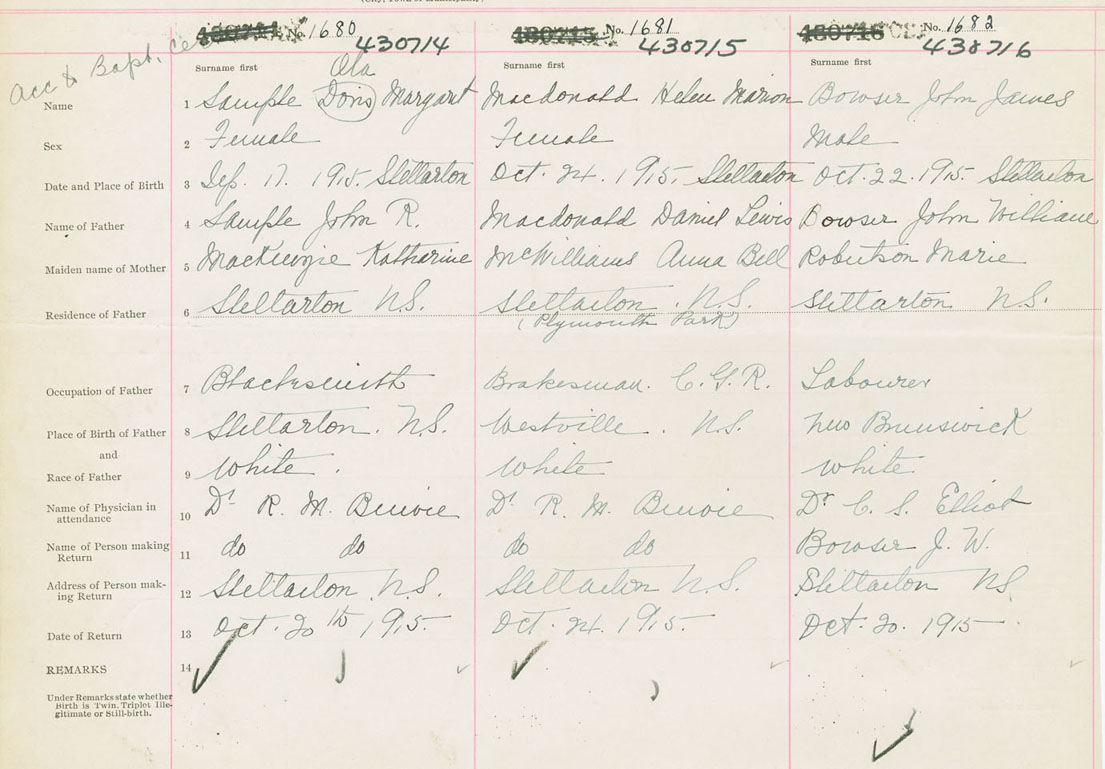 No. 1680 No. 1681 No. 1682
430714 430715 430716
Acc to Bapt. Ce
Surname first Surname first Surname first
Ola
Name 1 Sample Doris Margart Macdonald Helen Marion Bowser John James
Sex 2 Female Female Male
Date and Place of Birth 3 Sep. 17. 1915. Stellarton Oct. 24. 1915. Stellarton Oct. 22. 1915 Stellarton
Name of Father 4 Sample John R. Macdonald Daniel Lewis Bowser John William
Maiden name of Mother 5 MacKenzie Katharine McWilliams Anna Bell Robertson Marie
Residence of Father 6 Stellarton N.S. Stellarton. N.S. Stellarton N.S.
(Plymouth Park)
Occupation of Father 7 Blacksmith Brakesman. C.G.R. Labourer
Place of Birth of Father 8 Stellarton. N.S. Westville. N.S. New Brunswick
and
Race of Father 9 White. White White
Name of Physician in
attendance 10 Dr R. M. Benvie Dr R. M. Benvie Dr C. S. Elliot
Name of Person making
Return 11 do do do do Bowser J. W.
Address of Person mak-
ing Return 12 Stellarton N.S. Stellarton N.S. Stellarton NS
Date of Return 13 Oct. 20th 1915. Oct. 24. 1915. Oct. 20. 1915
REMARKS 14
Under Remarks state whether
Birth is Twin, Triplet Ille-
gitimate or Still-birth.